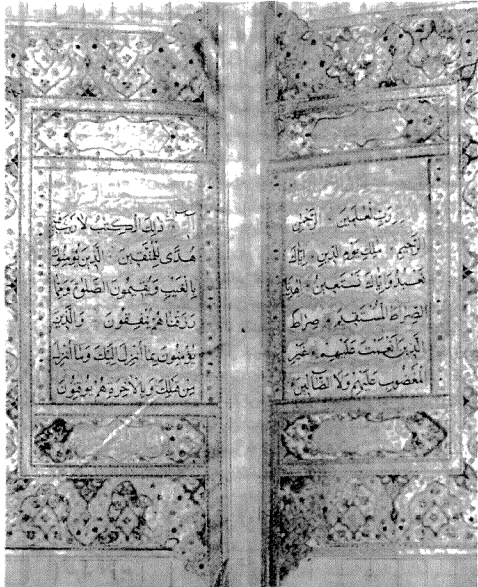 رب العلمين الرحمن
الرحيم ملك يوم الدين اياك
نعبد واياك نستعين اهدنا
الصراط المستقيم صراط
الذين انعمت عليهم غير
المغضوب عليهم ولا الضالين
الم ذلك الكتب لا ريب فيه
هدى للمتقين الذين يؤمنون
بالغيب ويقيمون الصلوة ومما
رزقناهم ينفقون والذين
يؤمنون بما انزل اليك وما انزل
من قبلك وبالاخرة هم يوقنون